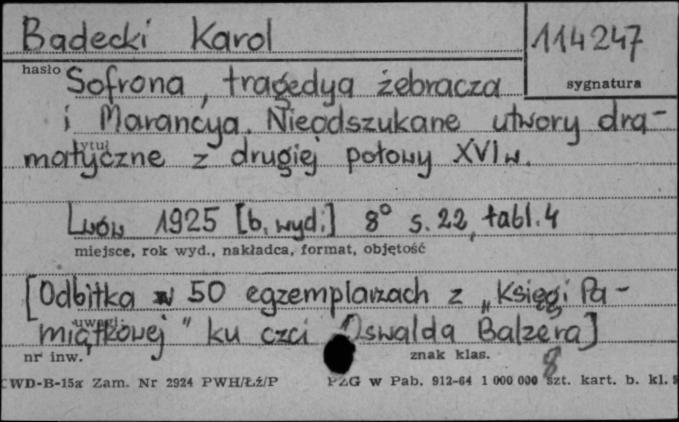 Badecki Karol
114247
hasło
sygnatura
Sofrona, tragedya żebracza
i Marancya. Nieodszukane utwory dra-
tytuł
matyczne z drugiej połowy XVI w.
Lwów 1925 [b. wyd.] 8° s. 22, tabl. 4
miejsce, rok wyd., nakładca, format, objętość
[Odbitka w 50 egzemplarzach z „Księgi Pa-
uwagi
miątkowej" ku czci Oswalda Balzera]
nr inw.
znak klas.
8
CWD-B-15a Zam. Nr 2924 PWH/Łź/P
PZG w Pab. 912-64 1 000 000 szt. kart. b. kl.